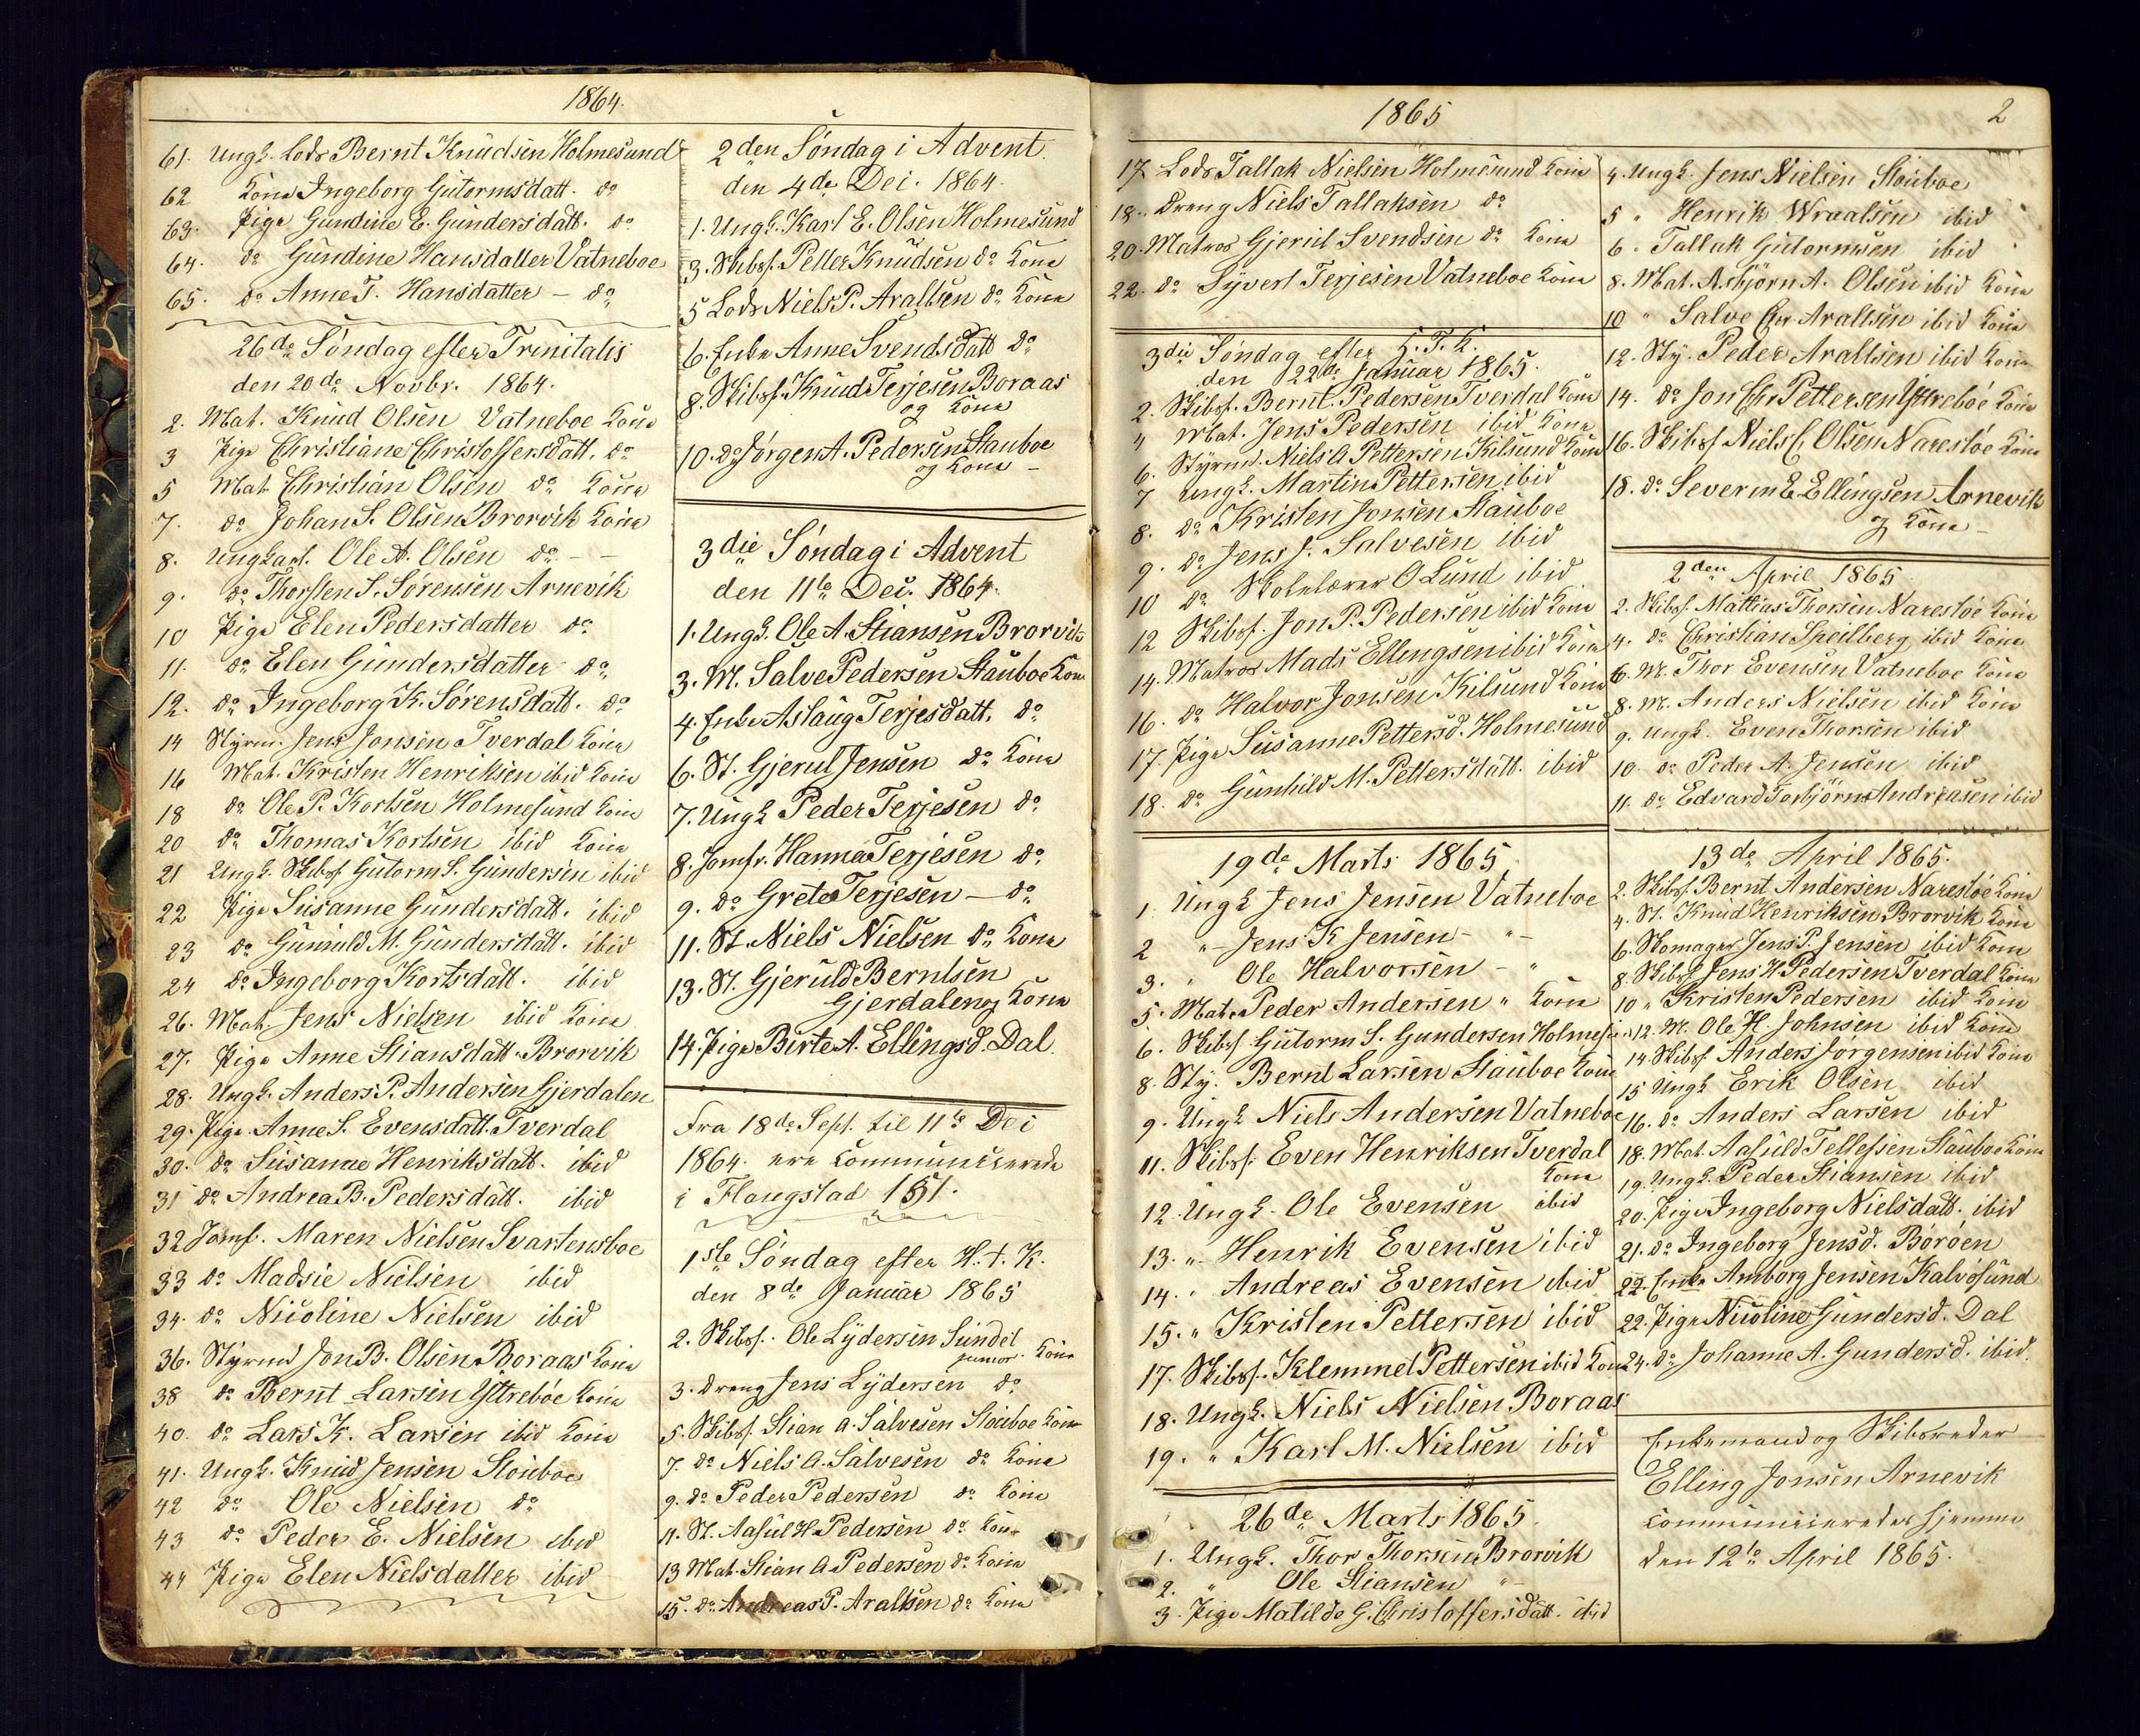 1864.
61. Ungk. Lods Bernt Knudsen Holmesund
62 Kone Ingeborg Gutormsdatt. do
63. Pige Gundine E. Gundersdatt. do
64. do Gundine Hansdatter Vatneboe
65. do Anne T. Hansdatter — do
26de Söndag efter Trinitatis
den 20de Novbr. 1864.
2. Mat. Knud Olsen Vatneboe Kone
3 Pige Christiane Christoffersdatt. do
5 Mat. Christian Olsen do Kone
7. do Johan S. Olsen Brorvik Kone
8. Ungkarl. Ole A. Olsen do - -
9. do Thorsten S. Sörensen Arnevik
10 Pige Elen Pedersdatter do
11. do Elen Gundersdatter do
12. do Ingeborg K. Sörensdatt. do
14 Styrm. Jens Jonsen Tverdal Kone
16 Mat. Kristen Henriksen ibid Kone
18 do Ole P. Kortsen Holmesund Kone
20 do Thomas Kortsen ibid Kone
21 Ungk. Skibsf. Gutorm S. Gundersen ibid
22 Pige Susanne Gundersdatt. ibid
23 do Gunuld M. Gundersdatt. ibid
24 do Ingeborg Kortsdatt. ibid
26. Mat. Jens Nielsen ibid Kone
27. Pige Anne Stiansdatt. Brorvik
28. Ungk. Anders P. Andersen Gjerdalen
29. Pige Anne S. Evensdatt. Tverdal
30. do Susanne Henriksdatt. ibid
31 do Andrea B. Pedersdatt. ibid
32 Jomf. Maren Nielsen Svartensboe
33 do Madsie Nielsen ibid
34. do Nicoline Nielsen ibid
36. Styrmd Jon B. Olsen Boraas Kone
38 do Bernt Larsen Yttreböe Kone
40. do Lars K. Larsen ibid Kone
41. Ungk. Knud Jensen Stouboe
42 do Ole Nielsen do
43 do Peder E. Nielsen ibid
44 Pige Elen Nielsdatter ibid
2den Söndag i Advent.
den 4de Dec. 1864.
1. Ungk. Karl E. Olsen Holmesund
3. Skibsf. Petter Knudsen do Kone
5 Lods Niels P. Araltsen do Kone
6. Enke Anne Svendsdatt do
8. Skibsf. Knud Terjesen Boraas
og Kone
10. do Jörgen A. Pedersen Stauboe
og Kone —
3die Söndag i Advent
den 11te Dec. 1864.
1. Ungk. Ole A. Stiansen Brorvik
3. M. Salve Pedersen Stauboe Kone
4. Enke Aslaug Terjesdatt. do
6. St. Gjerul Jensen do Kone
7. Ungk Peder Terjesen do
8. Jomfr. Hanna Terjesen do
9. do Grete Terjesen — do
11. St. Niels Nielsen do Kone
13. St. Gjeruld Berntsen
Gjerdalen og Kone
14. Pige Birte A. Ellingsd. Dal.
Fra 18de Sept. til 11te Dec
1864. ere Communicerede
i Flaugstad 151.
1ste Söndag efter H. t. K.
den 8de Januar 1865
2. Skibsf. Ole Lydersen Sundet
junior. Kone
3. Dreng Jens Lydersen do
5. Skibsf. Stian A. Salvesen Stouboe Kone
7. do Niels A. Salvesen do Kone
9. do Peder Pedersen do Kone
11. St. Aasul H. Pedersen do Kone
13 Mat. Stian A. Pedersen do Kone
15. do Andreas P. Araltsen do Kone
1865
2
17. Lods Tallak Nielsen Holmesund Kone
18. Dreng Niels Tallaksen do
20. Matros Gjeruld Svendsen do Kone
22. do Syvert Terjesen Vatneboe Kone
3die Söndag efter H. T. K.
den 22de Januar 1865.
2. Skibsf. Bernt Pedersen Tverdal Kone
4 Mat. Jens Pedersen ibid Kone
6. Styrmd. Niels A Pettersen Kilsund Kone
7 Ungk. Martin Pettersen ibid
8. do Kristen Jonsen Stauboe
9. do Jens J. Salvesen ibid
10 do Skolelærer O Lund ibid
12 Skibsf. Jon P. Pedersen ibid Kone
14. Matros Mads Ellingsen ibid Kone
16. do Halvor Jonsen Kilsund Kone
17. Pige Susanne Pettersd. Holmesund
18. do Gunhild M. Pettersdatt. ibid
19de Marts 1865
1. Ungk Jens Jensen Vatneboe
2 " Jens K Jensen - " -
3. " Ole Halvorsen - "
5. Mat. Peder Andersen " Kone
6. Skibsf. Gutorm S. Gundersen Holmesu
8. Sty. Bernt Larsen Stauboe Kone
9. Ungk Niels Andersen Vatneboe
11. Skibsf. Even Henriksen Tverdal
Kone
12. Ungk. Ole Evensen ibid
13. " Henrik Evensen ibid
14. " Andreas Evensen ibid
15. " Kristen Pettersen ibid
17. Skibsf. Klemmet Pettersen ibid Kone
18. Ungk. Niels Nielsen Boraas
19. " Karl M. Nielsen ibid
26de Marts 1865.
1. Ungk. Thor Thorsen Brorvik
2. " Ole Stiansen " -
3. Pige Matilde G. Christoffersdatt. ibid
4. Ungk. Jens Nielsen Stouboe
5 " Henrik Wraalsen ibid
6. Tallak Gutormsen ibid
8. Mat. Asbjörn A. Olsen ibid Kone
10 " Salve Chr Araltsen ibid Kone
12. Sty. Peder Araltsen ibid Kone
14. do Jon Chr Pettersen Yttreböe Kone
16. Skibsf. Niels C. Olsen Narestöe Kone
18. do Severin E. Ellingsen Arnevik
og Kone —
2den April 1865
2. Skibsf. Mattias Thorsen Narestöe Kone
4. do Christian Speilberg ibid Kone
6. M. Thor Evensen Vatneboe Kone
8. M. Anders Nielsen ibid Kone
9. Ungk. Even Thorsen ibid
10. do Peder A. Jensen ibid
11. do Edvard Torbjörn Andreasen ibid
13de April 1865.
2. Skibsf. Bernt Andersen Narestöe Kone
4. St. Knud Henriksen Brorvik Kone
6. Skomager Jens P. Jensen ibid Kone
8. Skibsf. Jens H. Pedersen Tverdal Kone
10 " Kristen Pedersen ibid Kone
12. M. Ole H. Johnsen ibid Kone
14. Skibsf. Anders Jörgensen ibid Kone
15 Ungk Erik Olsen ibid
16. do Anders Larsen ibid
18. Mat. Aasuld Tellefsen Stauboe Kone
19. Ungk. Peder Stiansen ibid
20. Pige Ingeborg Nielsdatt. ibid
21. do Ingeborg Jensd. Böröen
22. Enke Amborg Jensen Kalvösund
22. Pige Nicoline Gundersd. Dal
24. do Johanne A. Gundersd. ibid.
Enkemand og Skibsreder
Elling Jonsen Arnevik
communiceredes hjemme
den 12te April 1865.